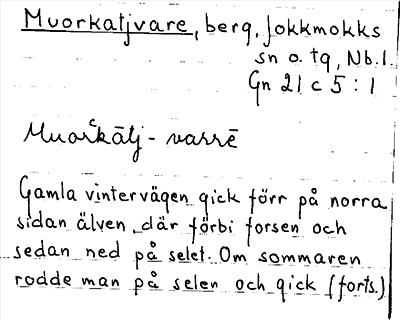 Muorkatjvare, berg, Jokkmokks
sn o. tg, Nb. l.
Gn 21 c 5 : 1
Muorkātj - varrē
Gamla vintervägen gick förr på norra
sidan älven, där förbi forsen och
sedan ned på selet. Om sommaren
rodde man på selen och gick (forts.)